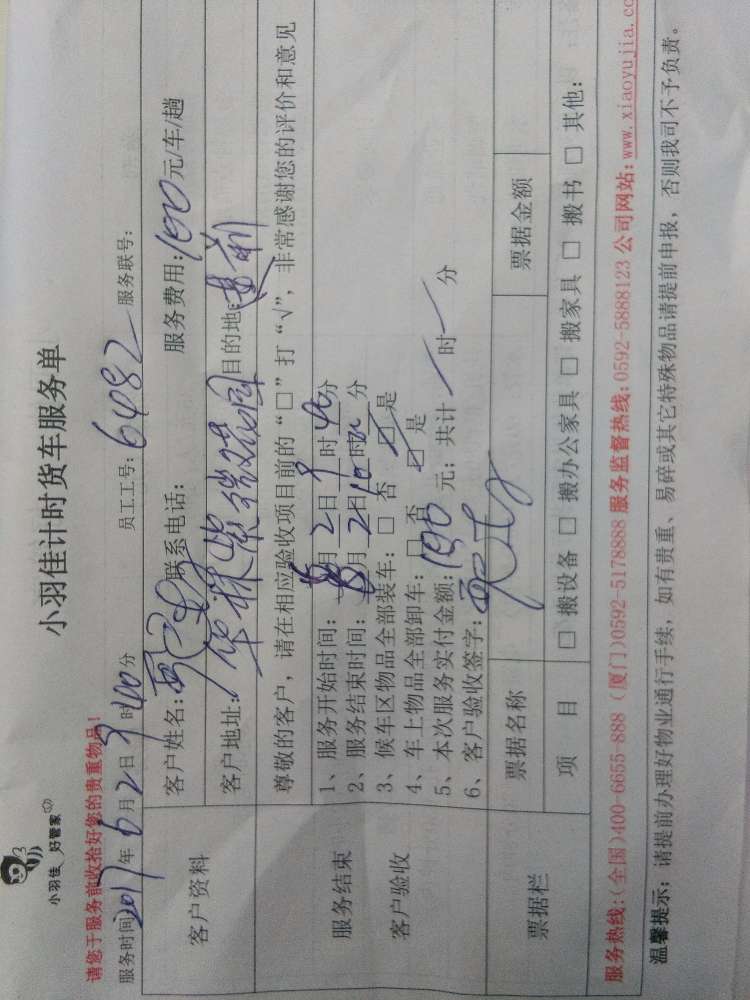 小羽佳 好管家
小羽佳计时货车服务单
请您于服务前收拾好您的贵重物品！
服务时间：2017年6月2日9时00分 员工工号：6482 服务联号：
客户资料
客户姓名： 联系电话： 服务费用：100元/车/趟
客户地址：华林紫薇花园 目的地：
服务结束
客户验收
尊敬的客户，请在相应验收项目前的“□”打“√”，非常感谢您的评价和意见
1、服务开始时间：6月2日9时40分
2、服务结束时间：6月2日10时30分
3、候车区物品全部装车：□ 否 ☑ 是
4、车上物品全部卸车：□ 否 ☑ 是
5、本次服务实付金额：100元；共计 时 分
6、客户验收签字：
票据栏
票据名称 票据金额
项 目 □ 搬设备 □ 搬办公家具 □ 搬家具 □ 搬书 □ 其他：
服务热线：（全国）400-6655-888（厦门）0592-5178888 服务监督热线：0592-5888123 公司网站：www.xiaoyujia.co
温馨提示：请提前办理好物业通行手续，如有贵重、易碎或其它特殊物品请提前申报，否则我司不予负责。